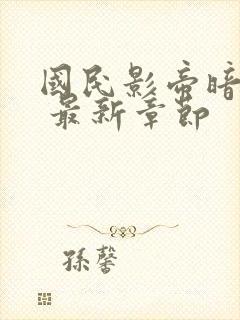 國民影帝暗
最新章節
孫馨